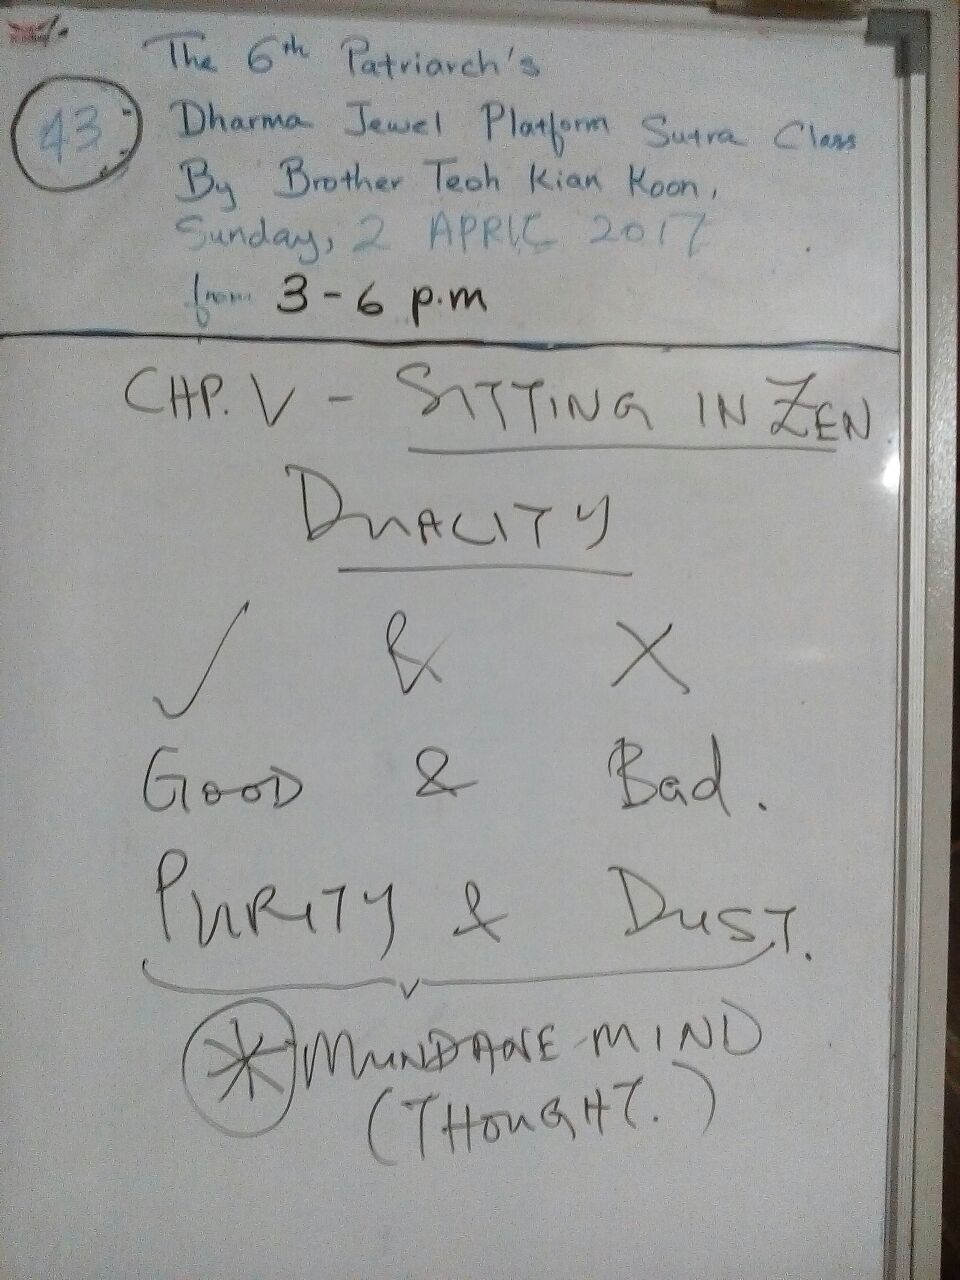 43
The 6th Patriarch's
Dharma Jewel Platform Sutra Class
By Brother Teoh Kian Koon,
Sunday, 2 APRIL 2017
from 3-6 p.m
CHP. V - SITTING IN ZEN
DUALITY
✓ & X
GOOD & Bad.
PURITY & DUST.
* MUNDANE MIND
(THOUGHT.)